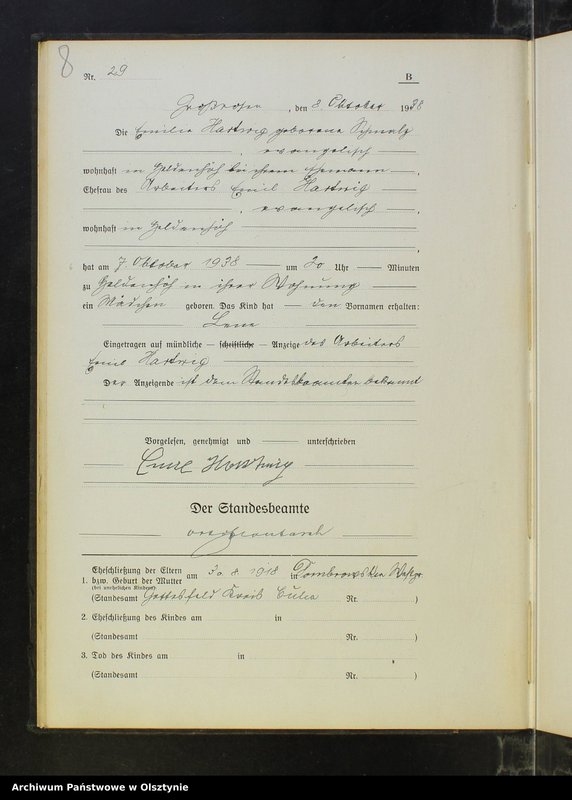 8
Nr. 29
B
Großrosen, den 8 Oktober 1938
Die Emilie Hartwig geborene Schmalz
, evangelisch
wohnhaft in Geldenhöh bei ihrem Ehemann,
Ehefrau des Arbeiters Emil Hartwig
, evangelisch,
wohnhaft in Geldenhöh
hat am 7. Oktober 1938 um 20 Uhr Minuten
zu Geldenhöh in ihrer Wohnung
ein Mädchen geboren. Das Kind hat den Vornamen erhalten:
Lene
Eingetragen auf mündliche – schriftliche – Anzeige des Arbeiters
Emil Hartwig
Der Anzeigende ist dem Standesbeamten bekannt
Vorgelesen, genehmigt und unterschrieben
Emil Hartwig
Der Standesbeamte
Eheschließung der Eltern
1. bzw. Geburt der Mutter am 30. 8. 1918 in Westpr.
(bei unehelichen Kindern)
(Standesamt Gottesfeld Kreis Culm Nr. )
2. Eheschließung des Kindes am in
(Standesamt Nr. )
3. Tod des Kindes am in
(Standesamt Nr. )
Archiwum Państwowe w Olsztynie